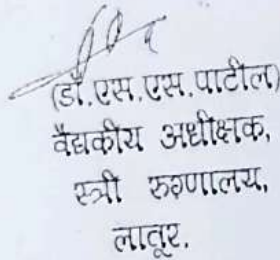 (डॉ.एस.एस.पाटील)
वैद्यकीय अधीक्षक,
स्त्री रुग्णालय,
लातूर.